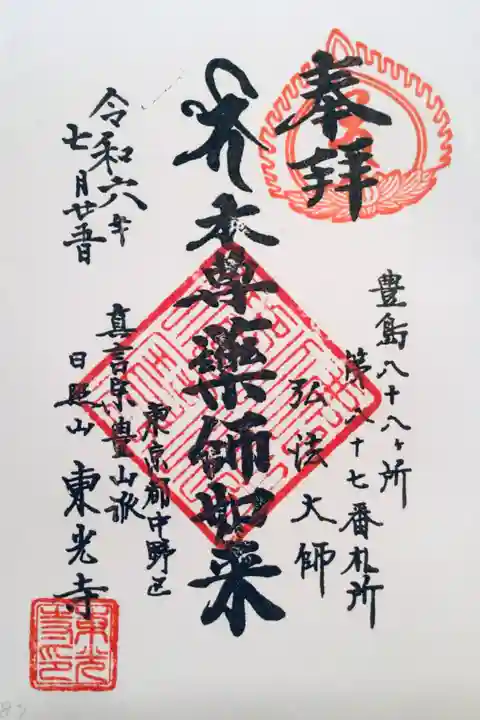 奉拝
豊島八十八ヶ所
第八十七番札所
弘法大師
本尊薬師如来
東京都中野区
真言宗豊山派
日照山 東光寺
令和六年
七月廿五日
東光
寺印
87